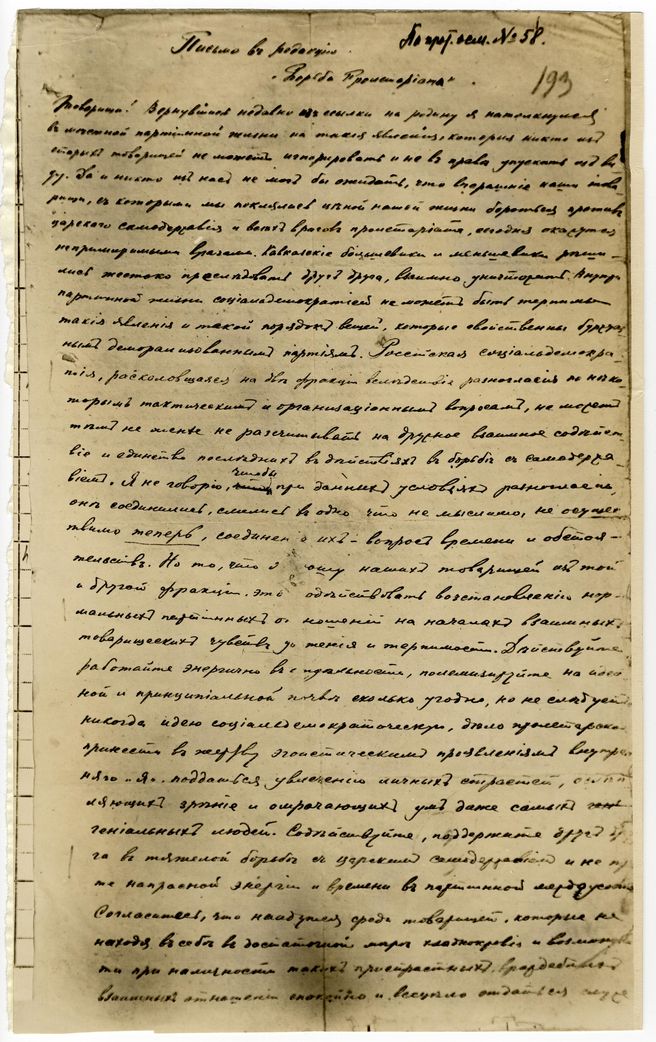 По прот. осм. № 58.
Письмо въ редакцію
"Борьба Пролетаріата"
193
Товарищи! Вернувшись недавно изъ ссылки на родину я натолкнулся
въ мѣстной партійной жизни на такія явленія, которыя никто изъ
старыхъ товарищей не можетъ игнорировать и не въ правѣ упускать изъ ви-
ду. Да и никто изъ насъ не могъ бы ожидать, что вчерашніе наши това-
рищи, съ которыми мы поклялись цѣной нашей жизни бороться противъ
царскаго самодержавія и всѣхъ враговъ пролетаріата, сегодня окажутся
непримиримыми врагами. Кавказскіе большевики и меньшевики рѣши-
лись жестоко преслѣдовать другъ друга, взаимно уничтожать. Внутри
партійной жизни соціалдемократіей не можетъ быть терпимы
такія явленія и такой порядокъ вещей, которые свойственны буржуаз-
нымъ деморализованнымъ партіямъ. Россійская соціальдемокра-
тія, расколовшаяся на двѣ фракціи вслѣдствіе разногласія по нѣко-
торымъ тактическимъ и организаціоннымъ вопросамъ, не можетъ
тѣмъ не менѣе не разсчитывать на дружное взаимное содѣйст-
віе и единство послѣднихъ въ дѣйствіяхъ въ борьбѣ съ самодержа-
віемъ. Я не говорю, чтобы при данныхъ условіяхъ разногласія,
онѣ соединились, слились въ одно что не мыслимо, не осущес-
твимо теперь, соединен о ихъ – вопросъ времени и обстоя-
тельствъ. Но то, что я ошу нашихъ товарищей изъ той
и другой фракціи, это содѣйствовать возстановленію нор-
мальныхъ партійныхъ о ношеній на началахъ взаимныхъ
товарищескихъ чувствъ, до тенія и терпимости. Дѣйствуйте
работайте энергично въ о дѣльности, полемизируйте на идей-
ной и принципіальной почвѣ сколько угодно, но не слѣдуетъ
никогда идею соціальдемократическую, дѣло пролетарское
принести въ жертву эгоистическимъ проявленіямъ внутрен-
няго "я", поддаться увлеченію личныхъ страстей, ослѣп-
ляющихъ зрѣніе и омрачающихъ умъ даже самыхъ ген-
геніальныхъ людей. Содѣйствуйте, поддержите другъ дру-
га въ тяжелой борьбѣ съ царскимъ самодержавіемъ и не
те напрасной энергіи и времени въ партійной междусоб
Согласитесь, что найдутся среди товарищей, которые не
находя въ себѣ въ достаточной мѣрѣ хладнокровія и возможнос-
ти при наличности такихъ пристрастныхъ, враждебныхъ
взаимныхъ отношеній спокойно и всецѣло отдаться служе